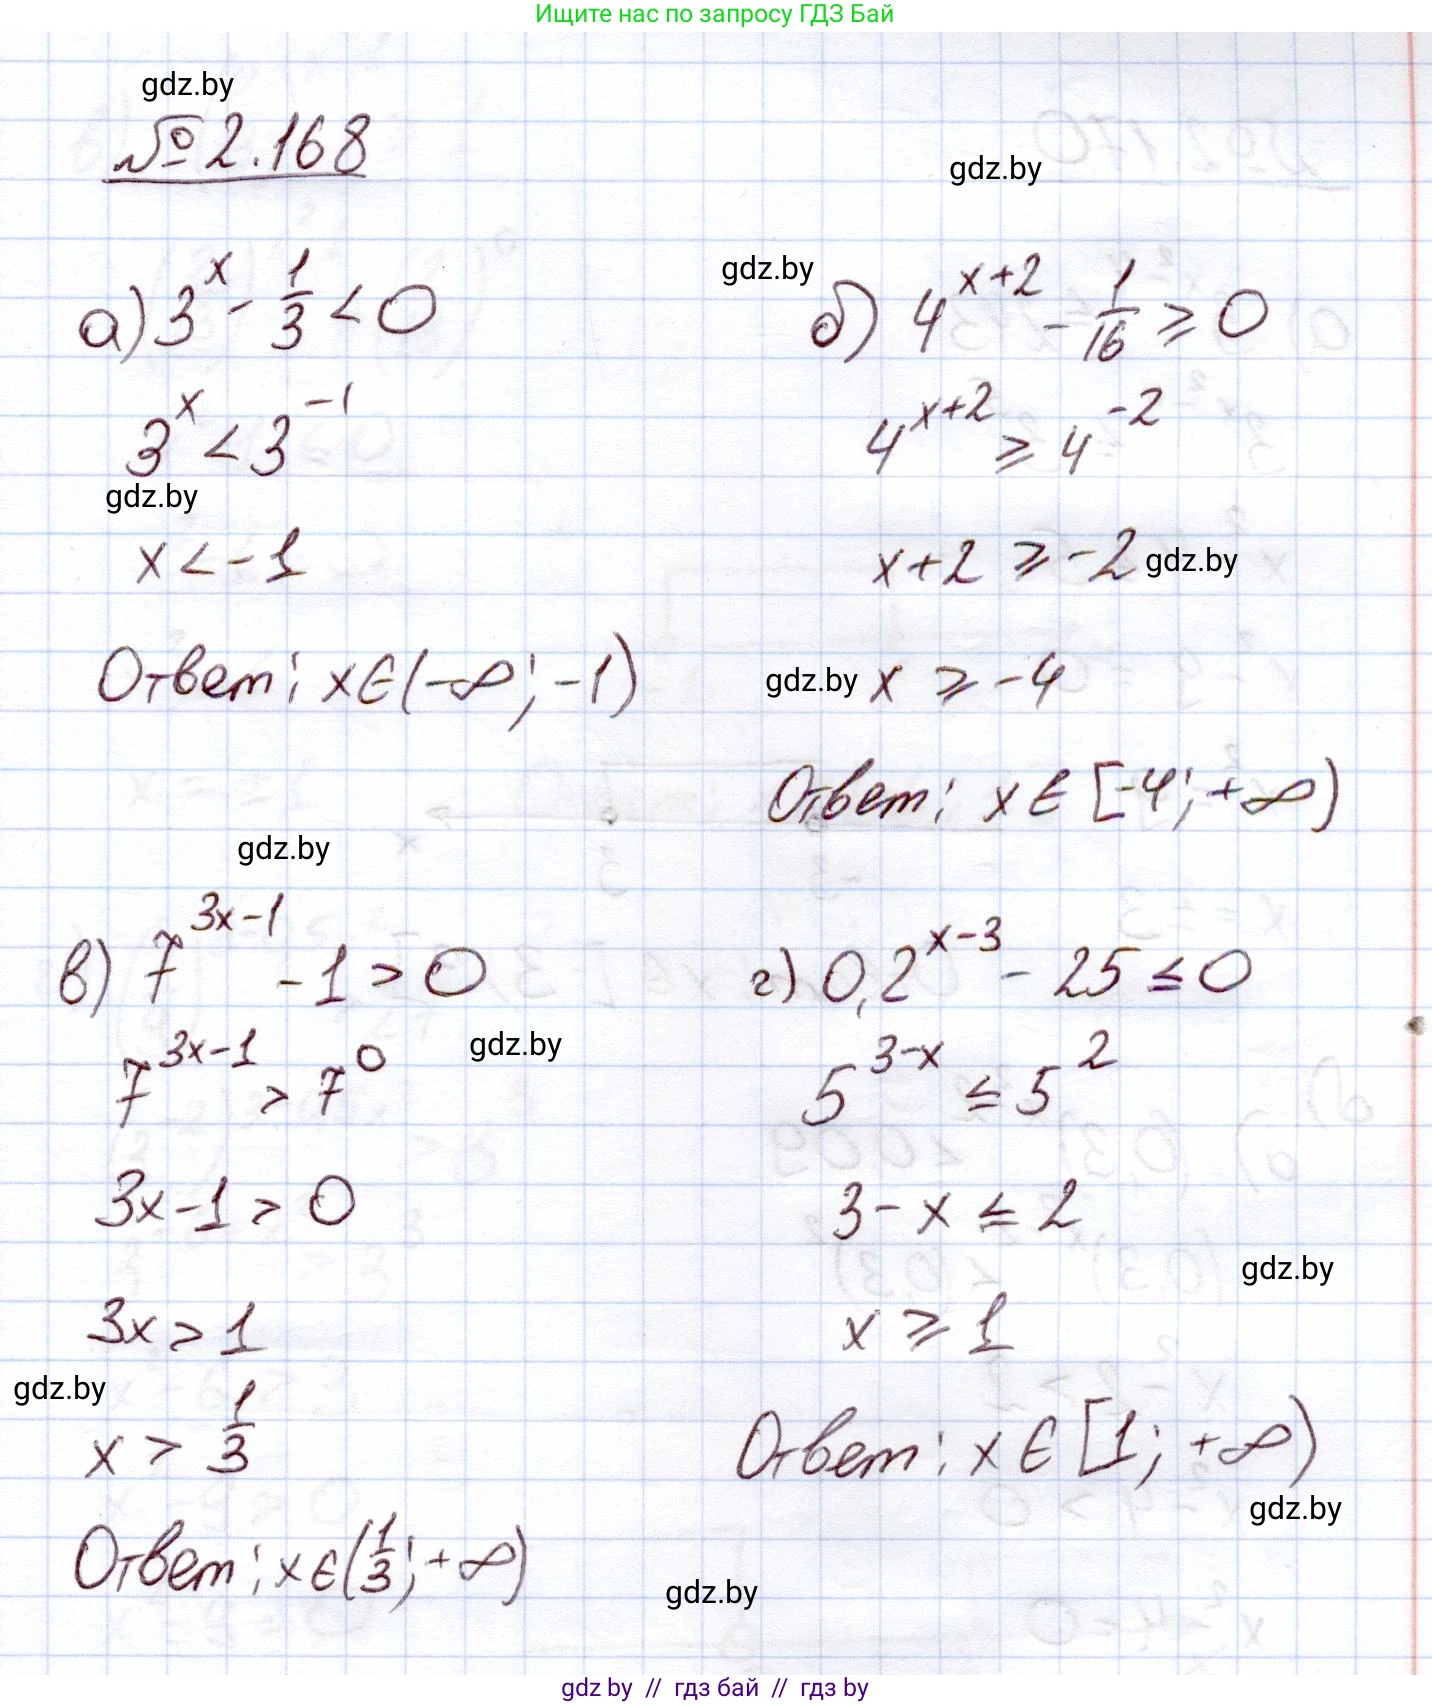 Ищите нас по запросу ГДЗ Бай
gdz.by
№ 2.168
gdz.by
а) 3^x - 1/3 < 0
3^x < 3^-1
gdz.by
x < -1
Ответ: x ∈ (-∞; -1)
gdz.by
б) 4^x+2 - 1/16 ⩾ 0
4^x+2 ⩾ 4^-2
x+2 ⩾ -2 gdz.by
gdz.by x ⩾ -4
Ответ: x ∈ [-4; +∞)
gdz.by
в) 7^3x-1 - 1 > 0
7^3x-1 > 7^0
gdz.by
3x-1 > 0
3x > 1
gdz.by
x > 1/3
Ответ: x ∈ (1/3; +∞)
г) 0,2^x-3 - 25 ⩽ 0
5^3-x ⩽ 5^2
3-x ⩽ 2
gdz.by
x ⩾ 1
Ответ: x ∈ [1; +∞)
gdz.by
gdz.by
gdz by // гдз бай // гдз by